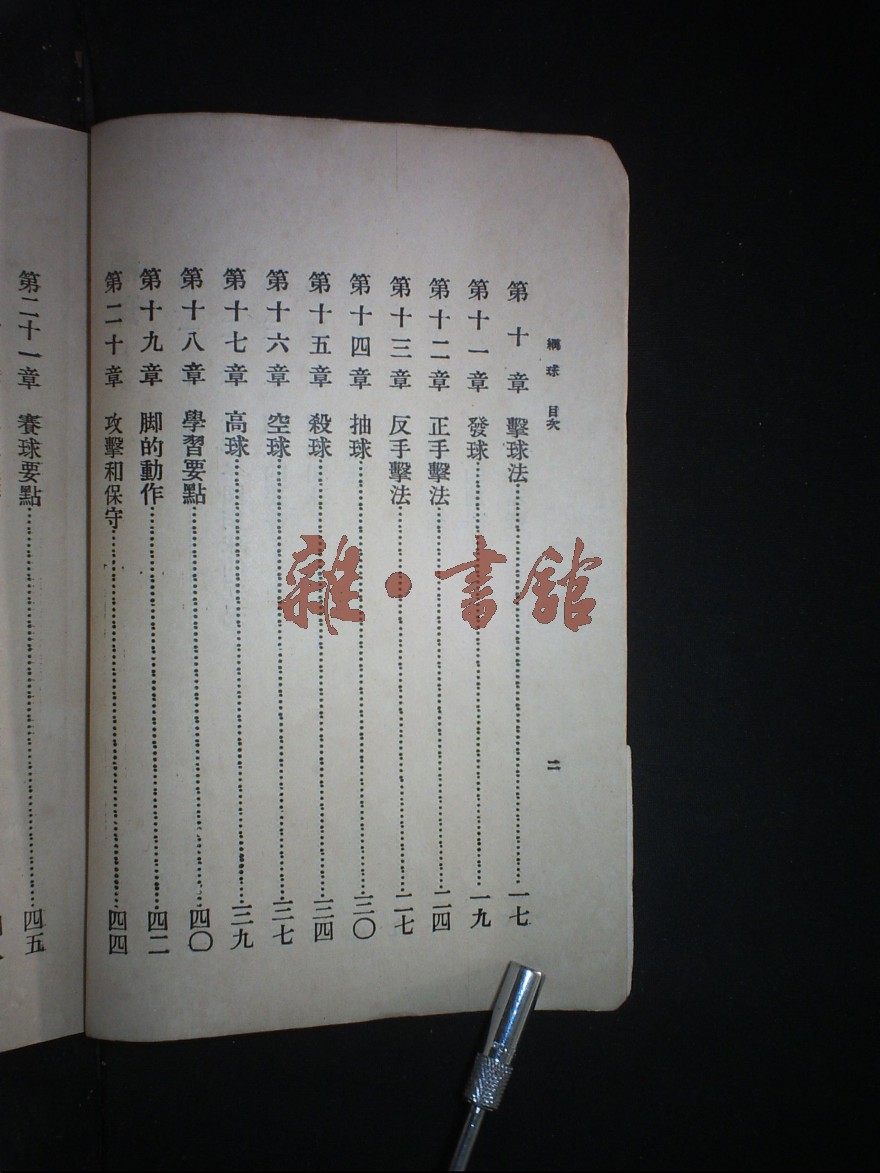 網球 目次 二
第十章 擊球法 一七
第十一章 發球 一九
第十二章 正手擊法 二四
第十三章 反手擊法 二七
第十四章 抽球 三〇
第十五章 殺球 三四
第十六章 空球 三七
第十七章 高球 三九
第十八章 學習要點 四〇
第十九章 脚的動作 四二
第二十章 攻擊和保守 四四
第二十一章 賽球要點 四五
雜·書館